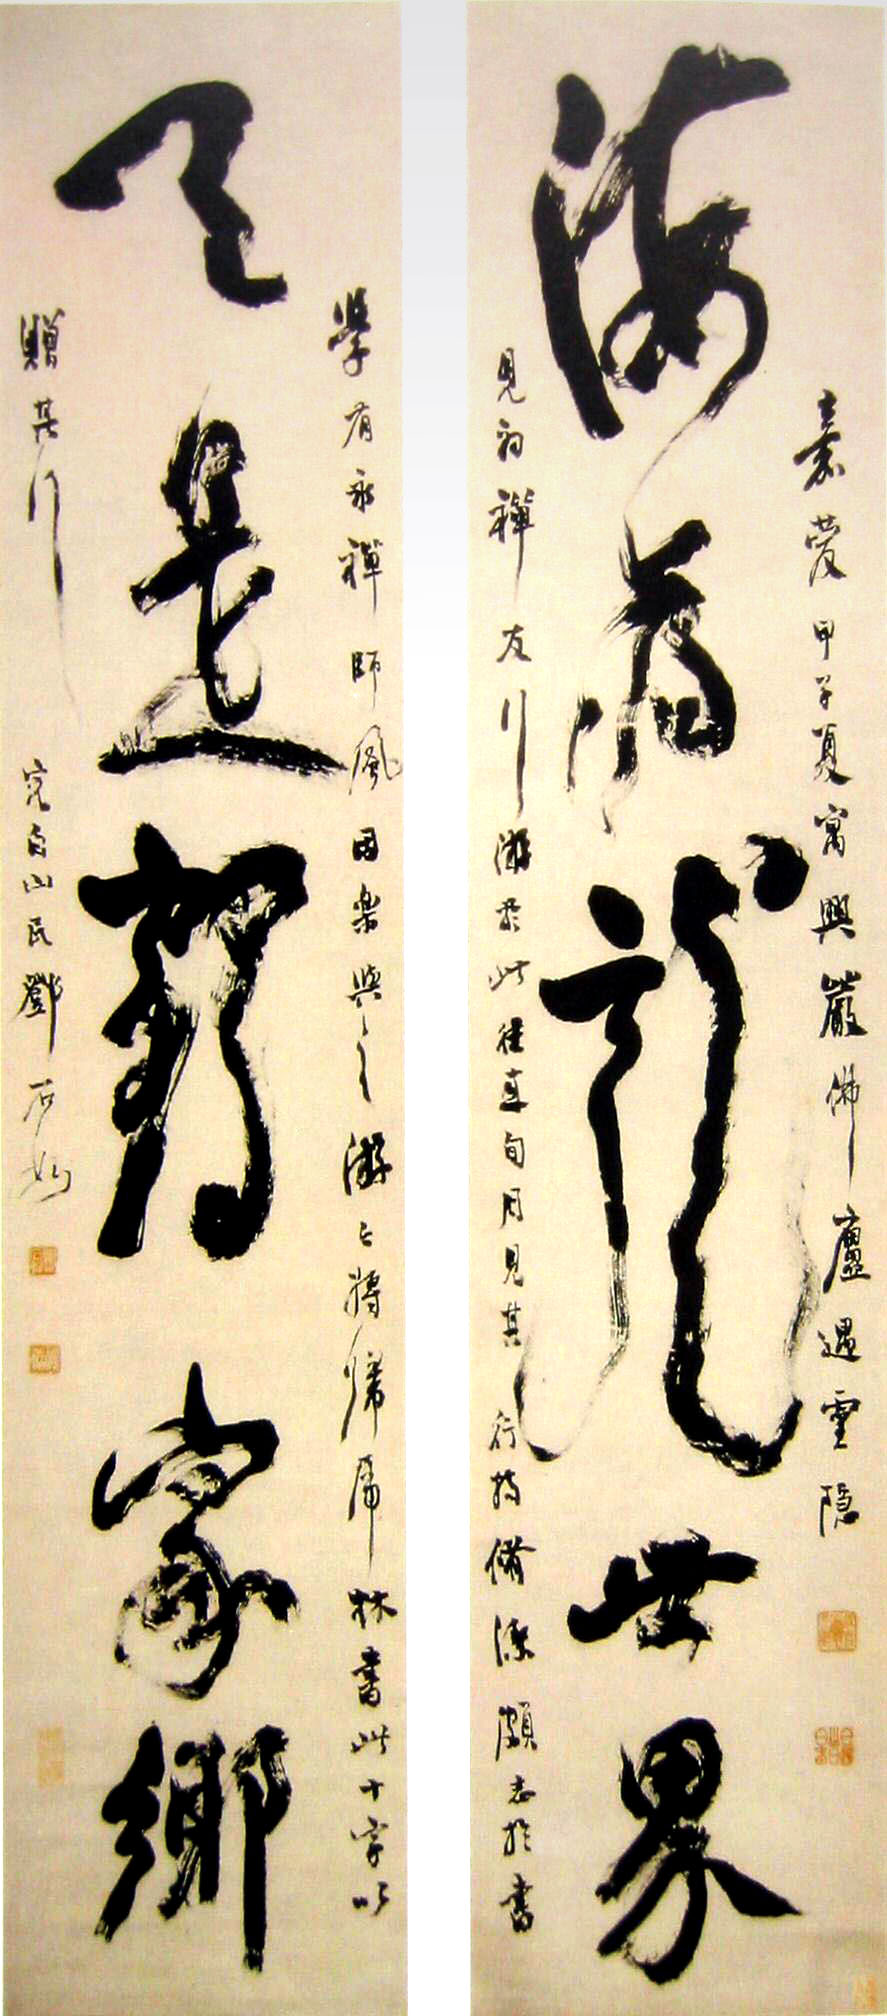 嘉慶甲子夏寓興嚴佛廬遇靈隱
海為龍世界
見初禪友行游於此旬月見其行持脩潔頗志於書
學有永禪師風因樂與之游將歸林書此十字以
天是鶴家鄉
贈其行 完白山民鄧石如